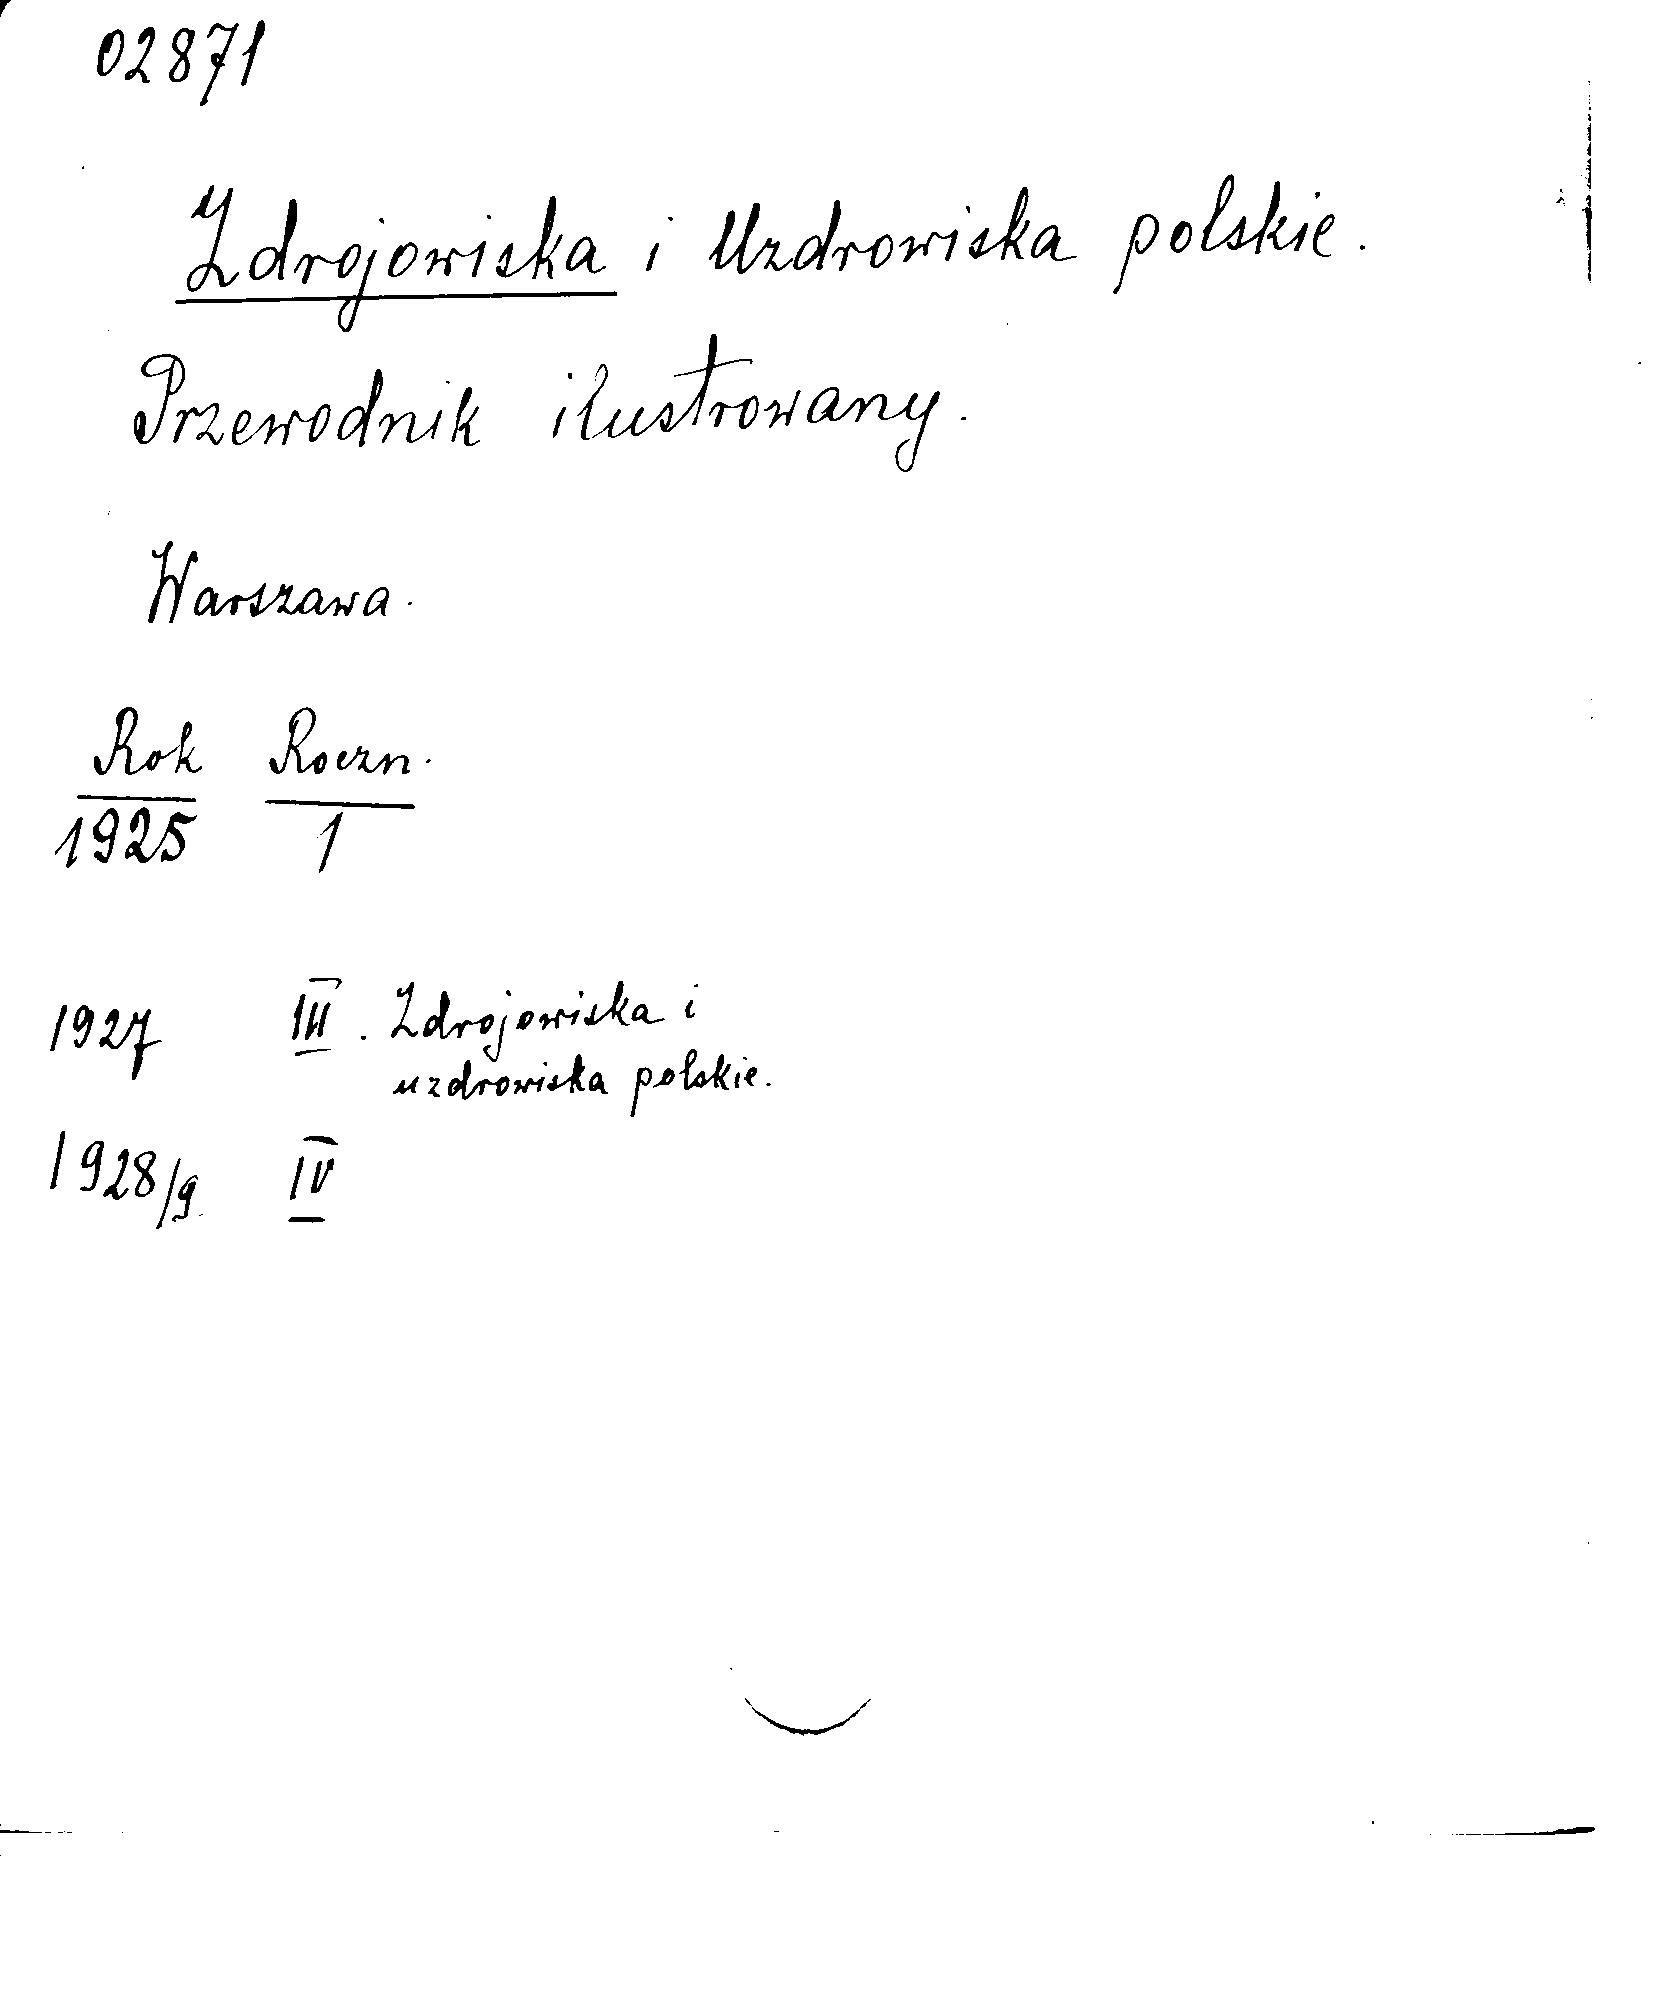 02871
Zdrojowiska i Uzdrowiska polskie.
Przewodnik ilustrowany.
Warszawa.
Rok Roczn.
1925 1
1927 III. Zdrojowiska i
uzdrowiska polskie.
1928/9 IV